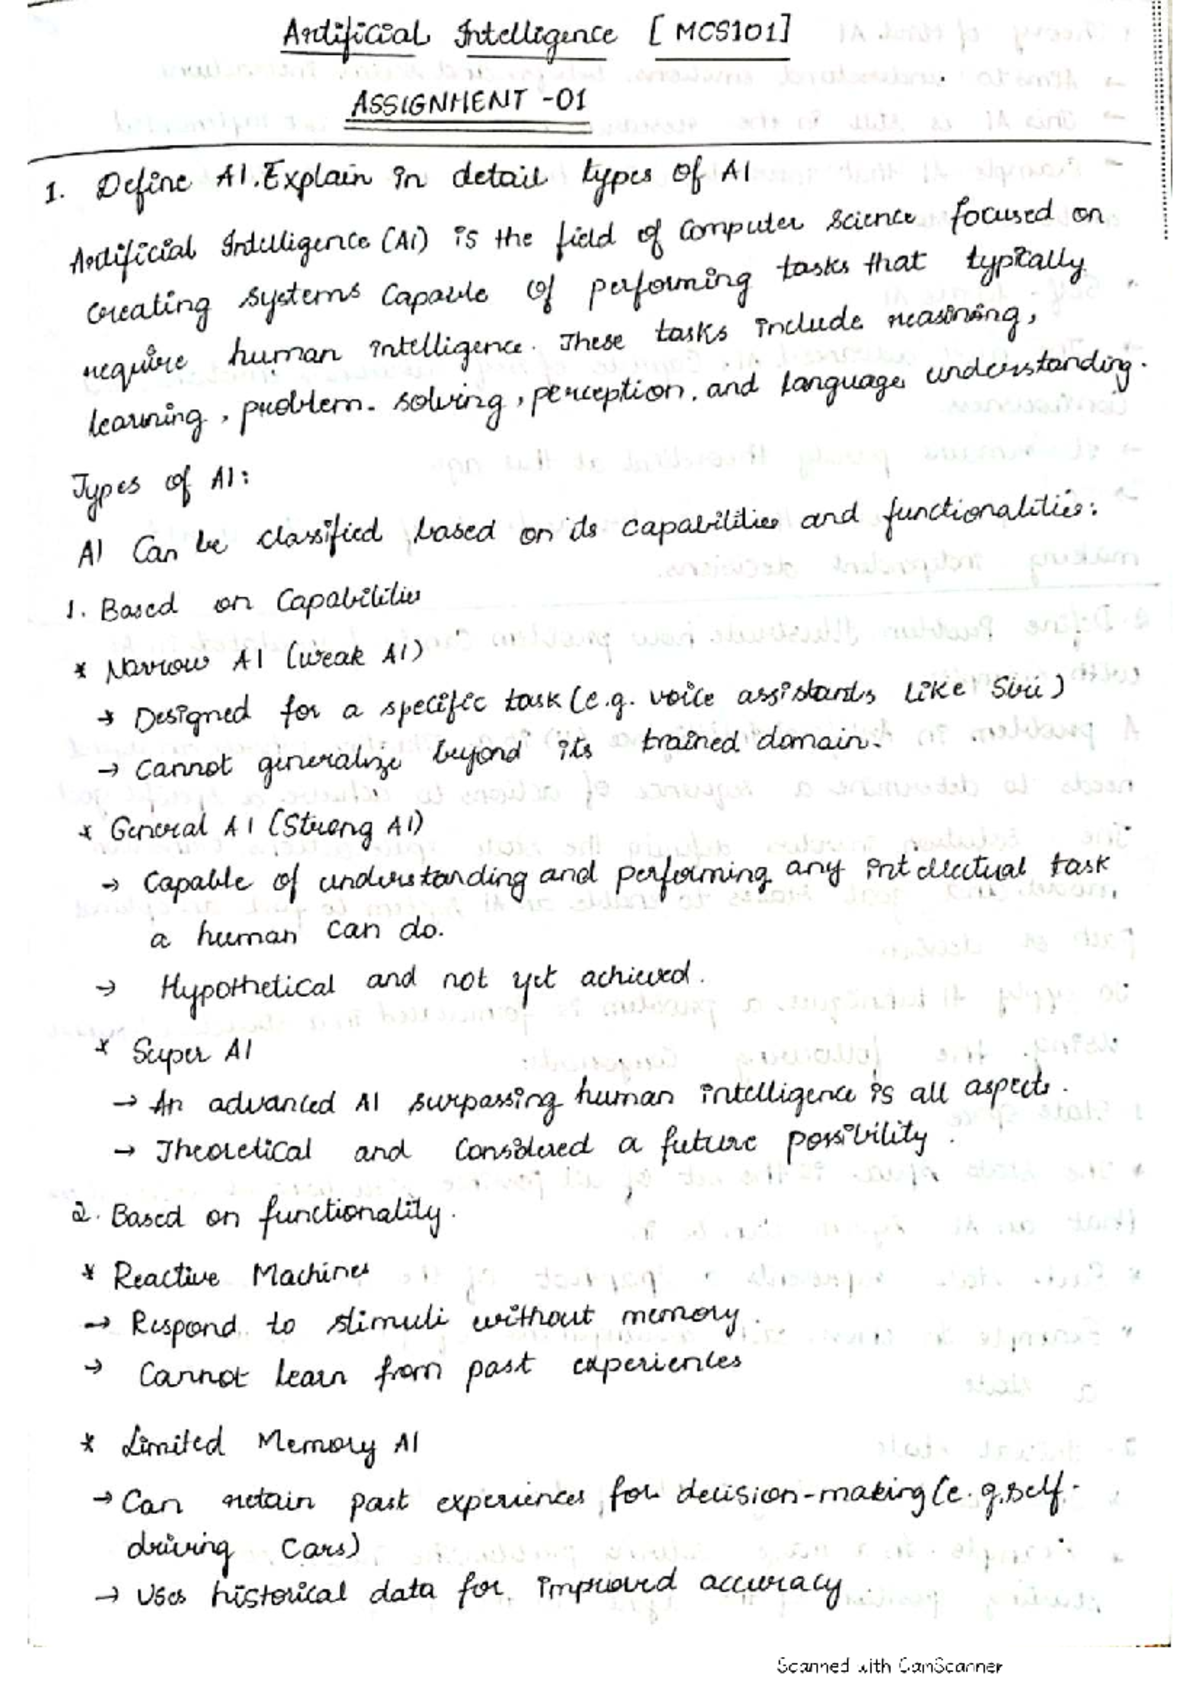 Artificial Intelligence [MCS101]
ASSIGNMENT -01
1. Define AI. Explain in detail types of AI
Artificial Intelligence (Ai) is the field of Computer Science focused on
creating systems capable of performing tasks that typically
require human intelligence. These tasks include reasining,
learning, problem-solving, perception, and language understanding.
Types of AI:
AI can be classified based on its capabilities and functionalities:
1. Based on Capabilities
* Narrow AI (Weak AI)
→ Designed for a specific task (e.g. voice assistants like Siri)
→ Cannot generalize beyond its trained domain.
* General AI (Strong AI)
→ Capable of understanding and performing any intellectual task
a human can do.
→ Hypothetical and not yet achieved.
* Super AI
→ An advanced AI surpassing human intelligence is all aspects.
→ Theoretical and considered a future possibility.
2. Based on functionality.
* Reactive Machines
→ Respond to stimuli without memory.
→ Cannot learn from past experiences
* Limited Memory AI
→ Can retain past experiences for decision-making (e.g. self-
driving cars)
→ Uses historical data for improved accuracy
Scanned with CamScanner